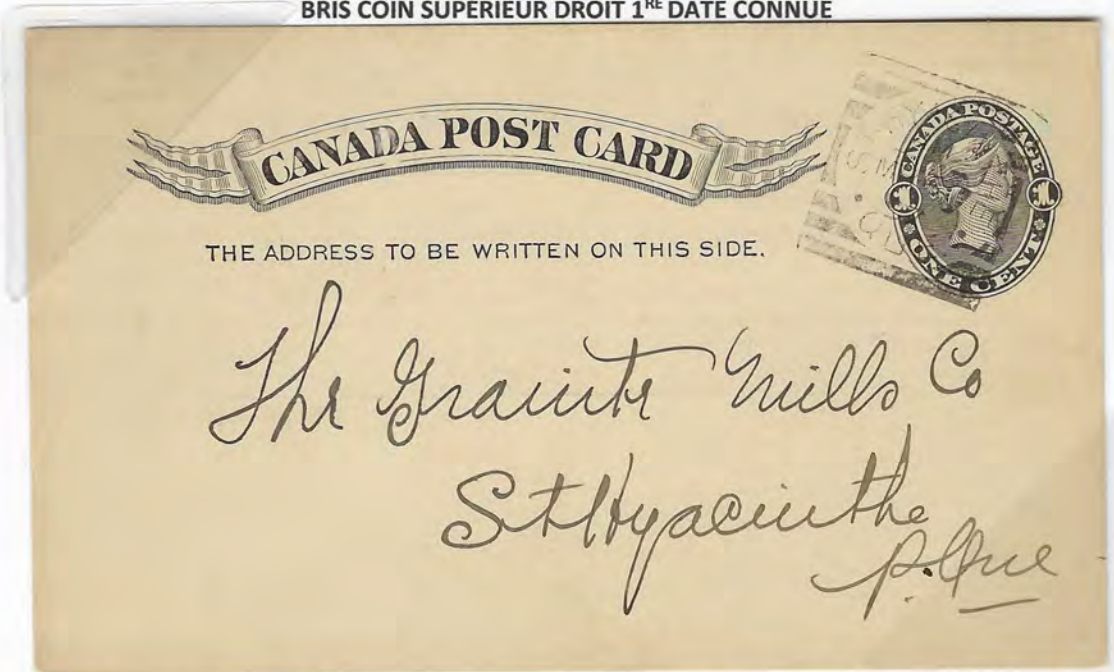 BRIS COIN SUPERIEUR DROIT 1RE DATE CONNUE
CANADA POST CARD
CANADA POSTAGE
1 1
ONE CENT
THE ADDRESS TO BE WRITTEN ON THIS SIDE.
The Granite Mills Co
St Hyacinthe
P. Que